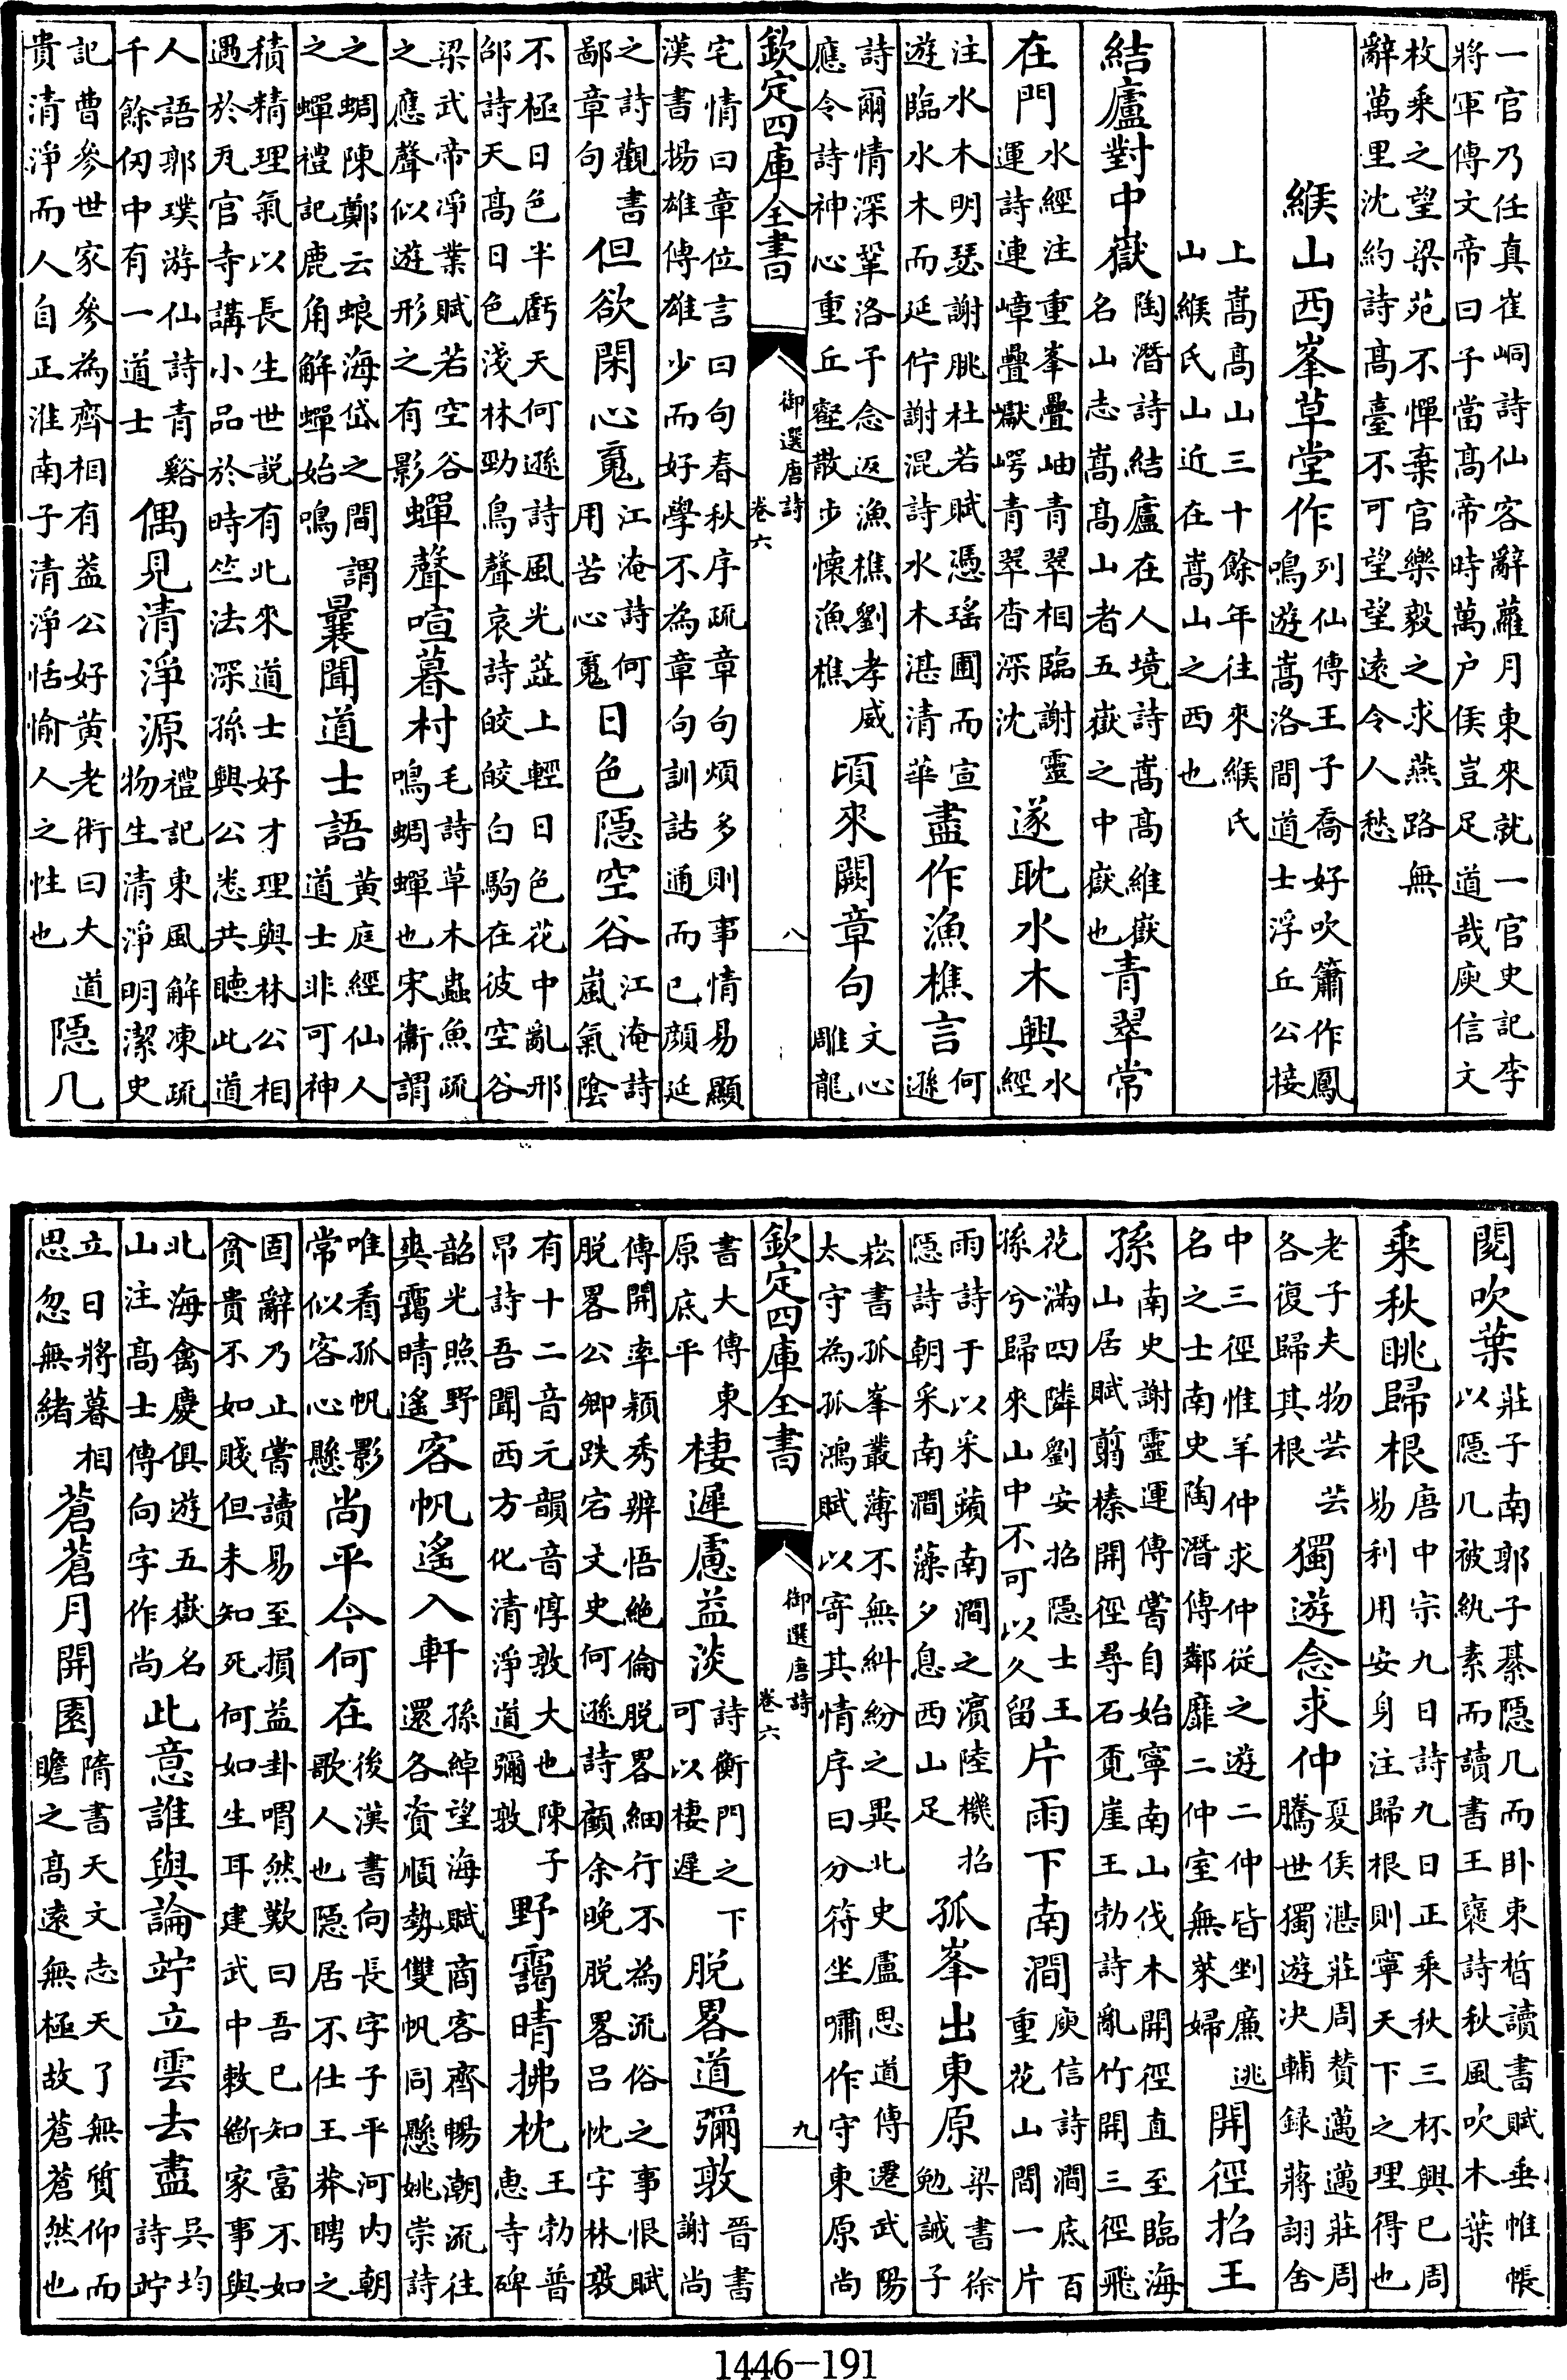 一官乃任真崔峒詩仙客辭蘿月東來就一官史記李
將軍傳文帝曰子當高帝時萬户侯豈足道哉庾信文
枚乘之望梁苑不憚棄官樂毅之求燕路無
辭萬里沈約詩高臺不可望望遠令人愁
緱山西峯草堂作 列仙傳王子喬好吹簫作鳳鳴遊嵩洛間道士浮丘公接
上嵩高山三十餘年往來緱氏
山緱氏山近在嵩山之西也
結廬對中嶽 陶潛詩結廬在人境詩嵩高維嶽名山志嵩高山者五嶽之中嶽也 青翠常
在門 水經注重峯疊岫青翠相臨謝靈運詩連嶂疊巘崿青翠杳深沈 遂耽水木興 水經
注水木明瑟謝朓杜若賦憑瑶圃而宣遊臨水木而延佇謝混詩水木湛清華 盡作漁樵言 何遜
詩爾情深鞏洛予念返漁樵劉孝威應令詩神心重丘壑散步懷漁樵 頃來闕章句 文心雕龍
欽定四庫全書 御選唐詩 卷六 八
宅情曰章位言曰句春秋序疏章句煩多則事情易顯
漢書揚雄傳雄少而好學不為章句訓詁通而已顔延
之詩觀書鄙章句 但欲閑心䰟 江淹詩何用苦心䰟 日色隠空谷 江淹詩嵐氣陰
不極日色半虧天何遜詩風光蕋上輕日色花中亂邢
邵詩天高日色淺林勁鳥聲哀詩皎皎白駒在彼空谷
梁武帝凈業賦若空谷之應聲似遊形之有影 蟬聲喧暮村 毛詩草木蟲魚疏鳴蜩蟬也宋衛謂
之蜩陳鄭云蜋海岱之間謂之蟬禮記鹿角解蟬始鳴 曩聞道士語 黄庭經仙人道士非可神
積精理氣以長生世説有北來道士好才理與林公相
遇於瓦官寺講小品於時竺法深孫興公悉共聽此道
人語郭璞游仙詩青谿千餘仞中有一道士 偶見清淨源 禮記東風解凍疏物生清淨明潔史
記曹參世家參為齊相有葢公好黄老術曰大道貴清淨而人自正淮南子清淨恬愉人之性也 隠几
閲吹葉 莊子南郭子綦隠几而卧束晳讀書賦垂帷帳以隠几被紈素而讀書王襃詩秋風吹木葉
乘秋眺歸根 唐中宗九日詩九日正乘秋三杯興已周易利用安身注歸根則寧天下之理得也
老子夫物芸芸各復歸其根 獨遊念求仲 夏侯湛莊周賛邁邁莊周騰世獨遊决輔録蔣詡舍
中三徑惟羊仲求仲從之遊二仲皆剉廉逃名之士南史陶潛傳鄰靡二仲室無萊婦 開徑招王
孫 南史謝靈運傳嘗自始寧南山伐木開徑直至臨海山居賦翦榛開徑尋石覔崖王勃詩亂竹開三徑飛
花滿四隣劉安招隠士王孫兮歸來山中不可以久留 片雨下南澗 庾信詩澗底百重花山間一片
雨詩于以采蘋南澗之濵陸機招隠詩朝采南澗藻夕息西山足 孤峯出東原 梁書徐勉誡子
崧書孤峯叢薄不無糾紛之異北史盧思道傳遷武陽
太守為孤鴻賦以寄其情序曰分符坐嘯作守東原尚
欽定四庫全書 御選唐詩 卷六 九
書大傳東原底平 棲遲慮益淡 詩衡門之下可以棲遲 脱畧道彌敦 晉書謝尚
傳開率頴秀辨悟絶倫脱畧細行不為流俗之事恨賦
脱畧公卿跌宕文史何遜詩顧余晚脱畧吕忱字林敦
有十二音元韻音惇敦大也陳子昂詩吾聞西方化清淨道彌敦 野靄晴拂枕 王勃普惠寺碑
韶光照野爽靄晴遙 客帆遙入軒 孫綽望海賦商客齊暢潮流往還各資順勢雙帆同懸姚崇詩
唯看孤帆影常似客心懸 尚平今何在 後漢書向長字子平河内朝歌人也隠居不仕王莽聘之
固辭乃止嘗讀易至損益卦喟然歎曰吾已知富不如
貧貴不如賤但未知死何如生耳建武中敕斷家事與
北海禽慶俱遊五嶽名山注高士傳向字作尚 此意誰與論竚立雲去盡 吳均詩竚
立日將暮相思忽無緒 蒼蒼月開園 隋書天文志天了無質仰而瞻之高遠無極故蒼蒼然也
1446-191